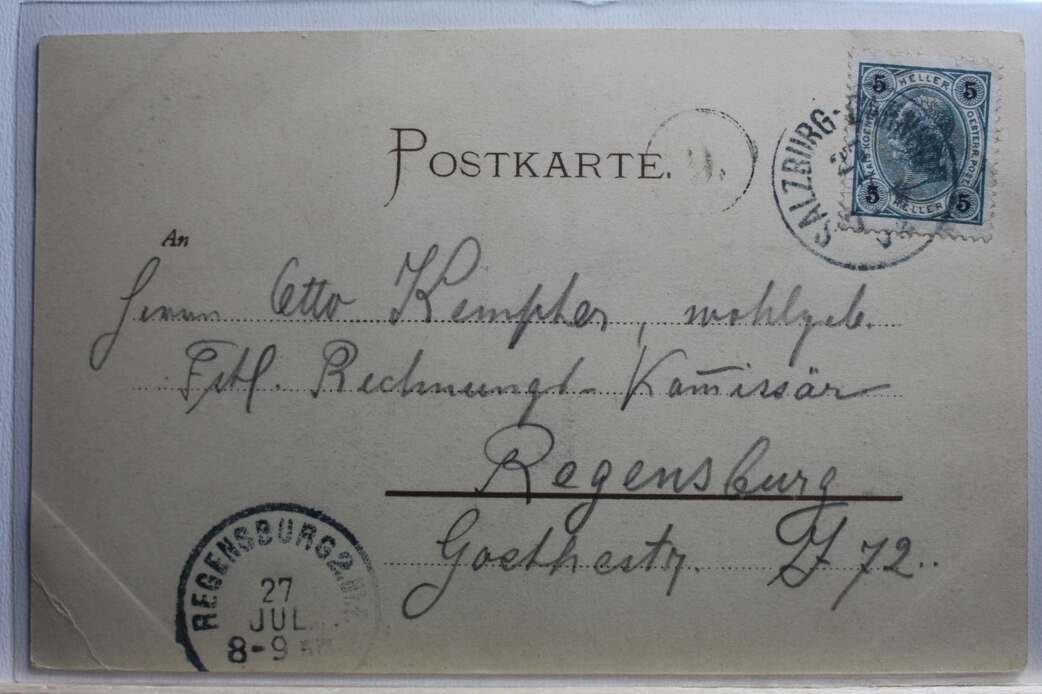 POSTKARTE.
5 HELLER 5
5 HELLER 5
OESTERR. POST
SALZBURG-
An
Herrn Otto Kempter, wohlgeb.
Fstl. Rechnungs-Kom̄issär
Regensburg
Goethestr. 72..
REGENSBURG 2.
27
JUL
8-9